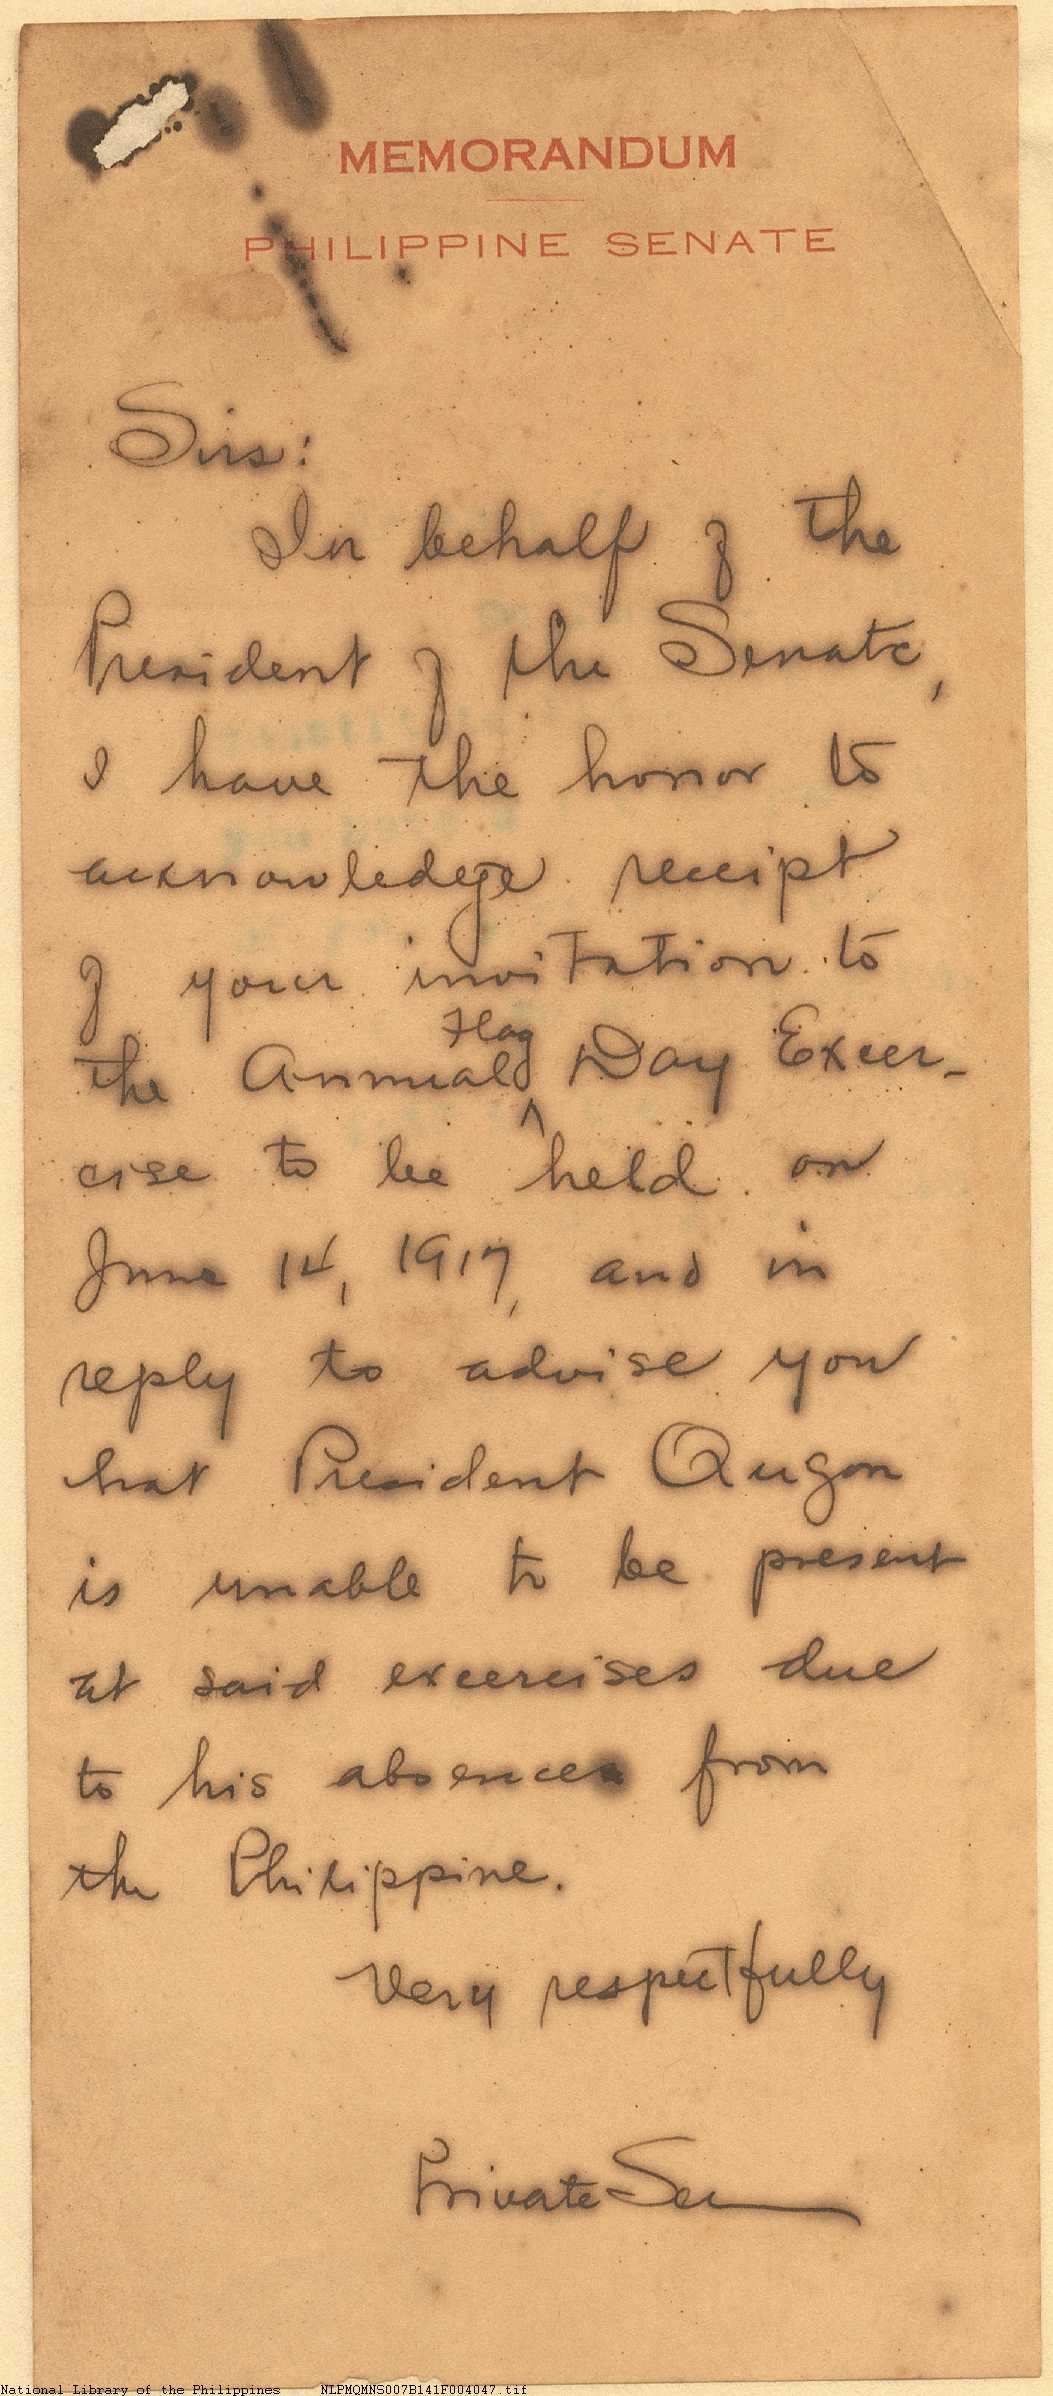 MEMORANDUM
PHILIPPINE SENATE
Sirs:
In behalf of the
President of the Senate,
I have the honor to
acknowledege receipt
of your invitation to
the Annual Flag Day Excer-
cise to be held on
June 14, 1917, and in
reply to advise you
that President Quezon
is unable to be present
at said excercises due
to his absence from
the Philippine.
Very respectfully
Private Sec
National Library of the Philippines NLPMQMNS007B141F004047.tif